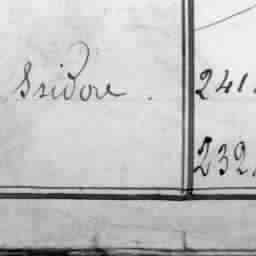 Isidore .
241.
232.